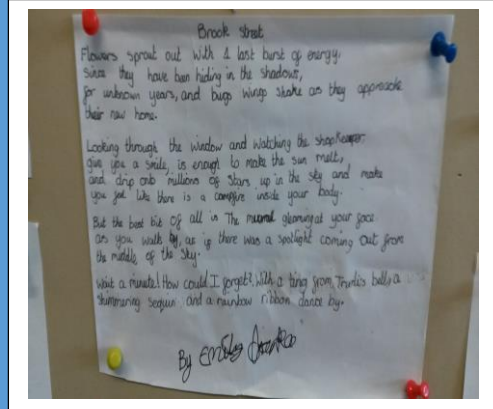 Brook Street
Flowers sprout out with 1 last burst of energy.
Since they have been hiding in the shadows,
for unknown years, and bugs wings shake as they approache
their new home.
Looking through the window and watching the shopkeeper
give you a smile, is enough to make the sun melt,
and drip onto millions of stars up in the sky and make
you feel like there is a campfire inside your body.
But the best bit of all is The gleaming at your face
as you walk by, as if there was a spotlight coming out from
the middle of the sky.
Wait a minute! How could I forget? With a ting from bell, a
shimmering sequin and a rainbow ribbon dance by.
By